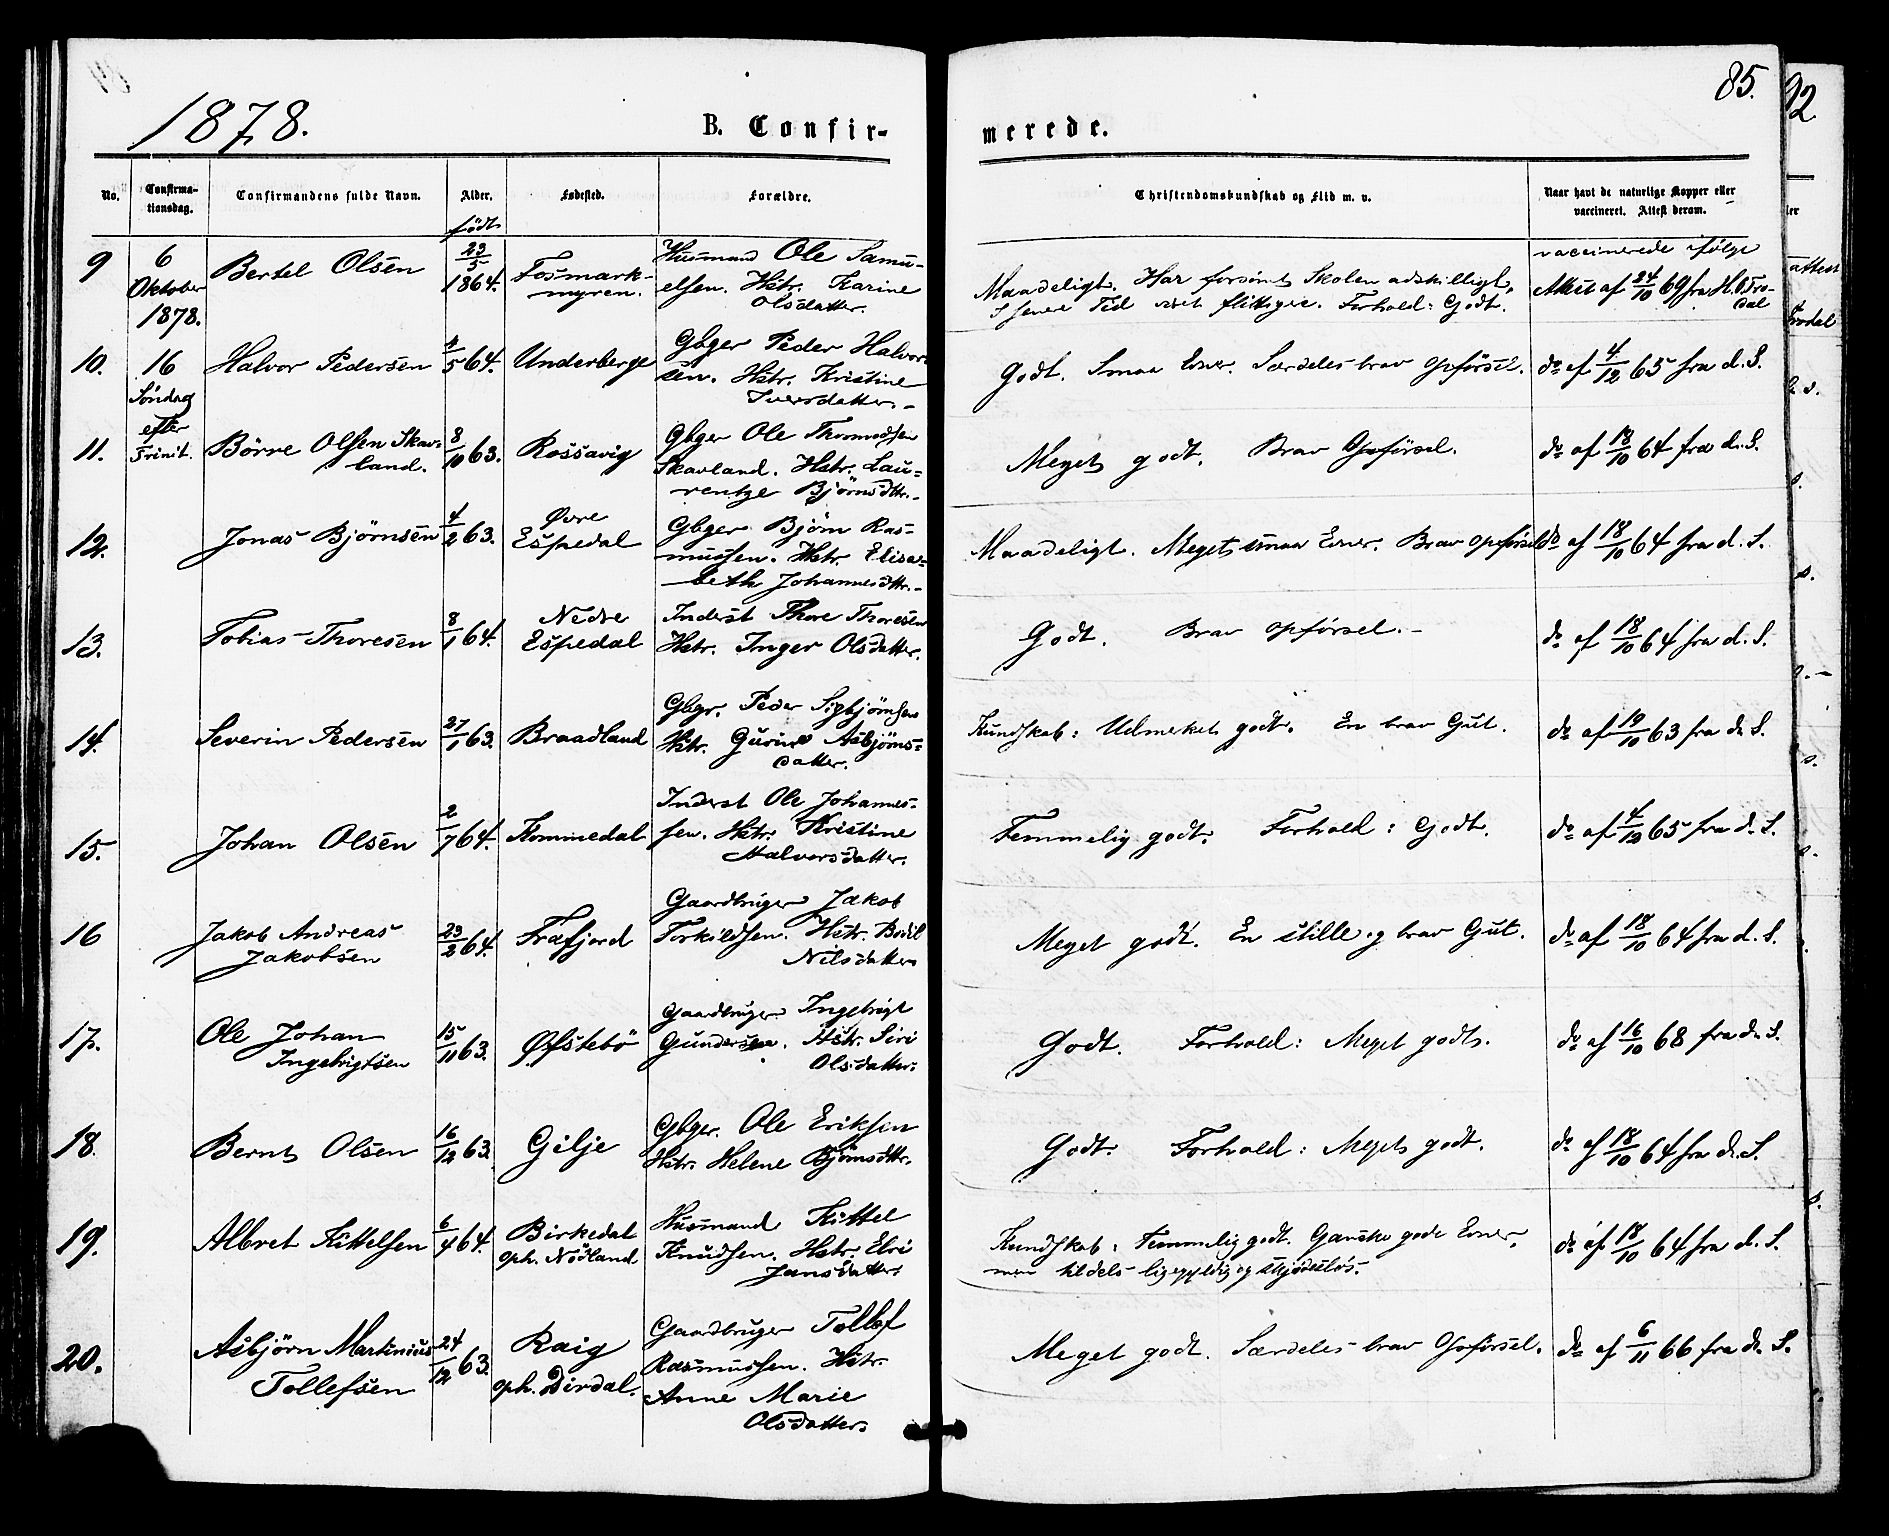 85.
1878.
B. Confirmerede.
No.
Confirmationsdag.
Confirmandens fulde Navn.
Alder.
Fødested.
Forældre.
Christendomskundskab og Flid m. v.
Naar havt de naturlige Kopper eller
vaccineret. Attest derom.
født
9
6
Oktober
1878.
Bertel Olsen
23/5
1864.
Fosmark-
myren.
Husmand Ole Samu-
elsen. Hstr. Karine
Olsdatter.
Maadeligt. Har forsømt Skolen adskilligt,
i senere Tid vist flittigere. Forhold: Godt.
vaccinerede ifølge
Attest af 24/10 69 fra H.
10.
16
Søndag
efter
Trinit.
Halvor Pedersen
4/5 64.
Underberge
Gbger Peder Halvor-
sen. Hstr. Kristine
Iversdatter.-
Godt. Smaa Evner. Særdeles brav Opførsel.
do af 4/12 65 fra d. S.
11.
Börre Olsen Skav-
land.
8/10 63.
Rossavig
Gbger Ole Thormodsen
Skavland. Hstr. Lau-
rentze Bjørnsdttr.-
Meget godt. Brav Opførsel.
do af 18/10 64 fra d. S.
12.
Jonas Bjørnsen
4/2 63.
Øvre
Espedal
Gbger Bjørn Ras-
mussen. Hstr. Elisa-
beth Johannesdttr.-
Maadeligt. Meget smaa Evner. Brav Opførsel
do af 18/10 64 fra d. S.
13.
Tobias Thoresen
8/1 64.
Nedre
Espedal
Inderst Thore Thoresen
Hstr. Inger Olsdatter.
Godt. Brav Opførsel.-
do af 18/10 64 fra d. S.
14.
Severin Pedersen
27/1 63.
Braadland
Gbgr. Peder Sigbjørnsen
Hstr. Gurine Asbjørns-
datter.
Kundskab: Udmerket godt. En brav Gut.
do af 19/10 63 fra d. S.
15.
Johan Olsen
2/7 64.
Kommedal
Inderst Ole Johannes-
sen. Hstr. Kristine
Halvorsdatter.
Temmelig godt. Forhold: Godt.
do af 4/12 65 fra d. S.
16
Jakob Andreas
Jakobsen
23/2 64.
Frafjord
Gaardbruger Jakob
Torkildsen. Hstr. Bodil
Nilsdatter
Meget godt. En stille og brav Gut.
do af 18/10 64 fra d. S.
17.
Ole Johan
Ingebrigtsen
15/11 63.
Øfstebö
Gaardbruger Ingebrigt
Gundersen. Hstr. Siri
Olsdatter.
Godt. Forhold: Meget godt.
do af 16/10 68 fra d. S.
18.
Bernt Olsen
16/12 63.
Gilje
Gbger. Ole Eriksen
Hstr. Helene Bjørnsdttr.
Godt. Forhold: Meget godt.
do af 18/10 64 fra d. S.
19.
Albret Kittelsen
6/4 64.
Birkedal
oph. Nödland
Husmand Kittel
Knudsen. Hstr. Elri
Jansdatter.
Kundskab: Temmelig godt. Ganske gode Evner,
men tildels ligegyldig og skjødesløs.
do af 18/10 64 fra d. S.
20.
Asbjörn Martinius
Tollefsen
24/12 63.
Raig
oph. Dirdal.
Gaardbruger Tollef
Rasmussen. Hstr.
Anne Marie
Olsdatter.
Meget godt. Særdeles brav Opførsel.
do af 6/11 66 fra d. S.